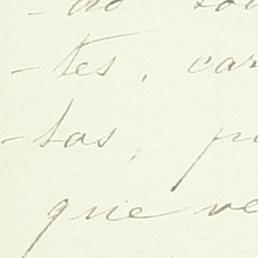 -tes, car
-tas, p
que ve